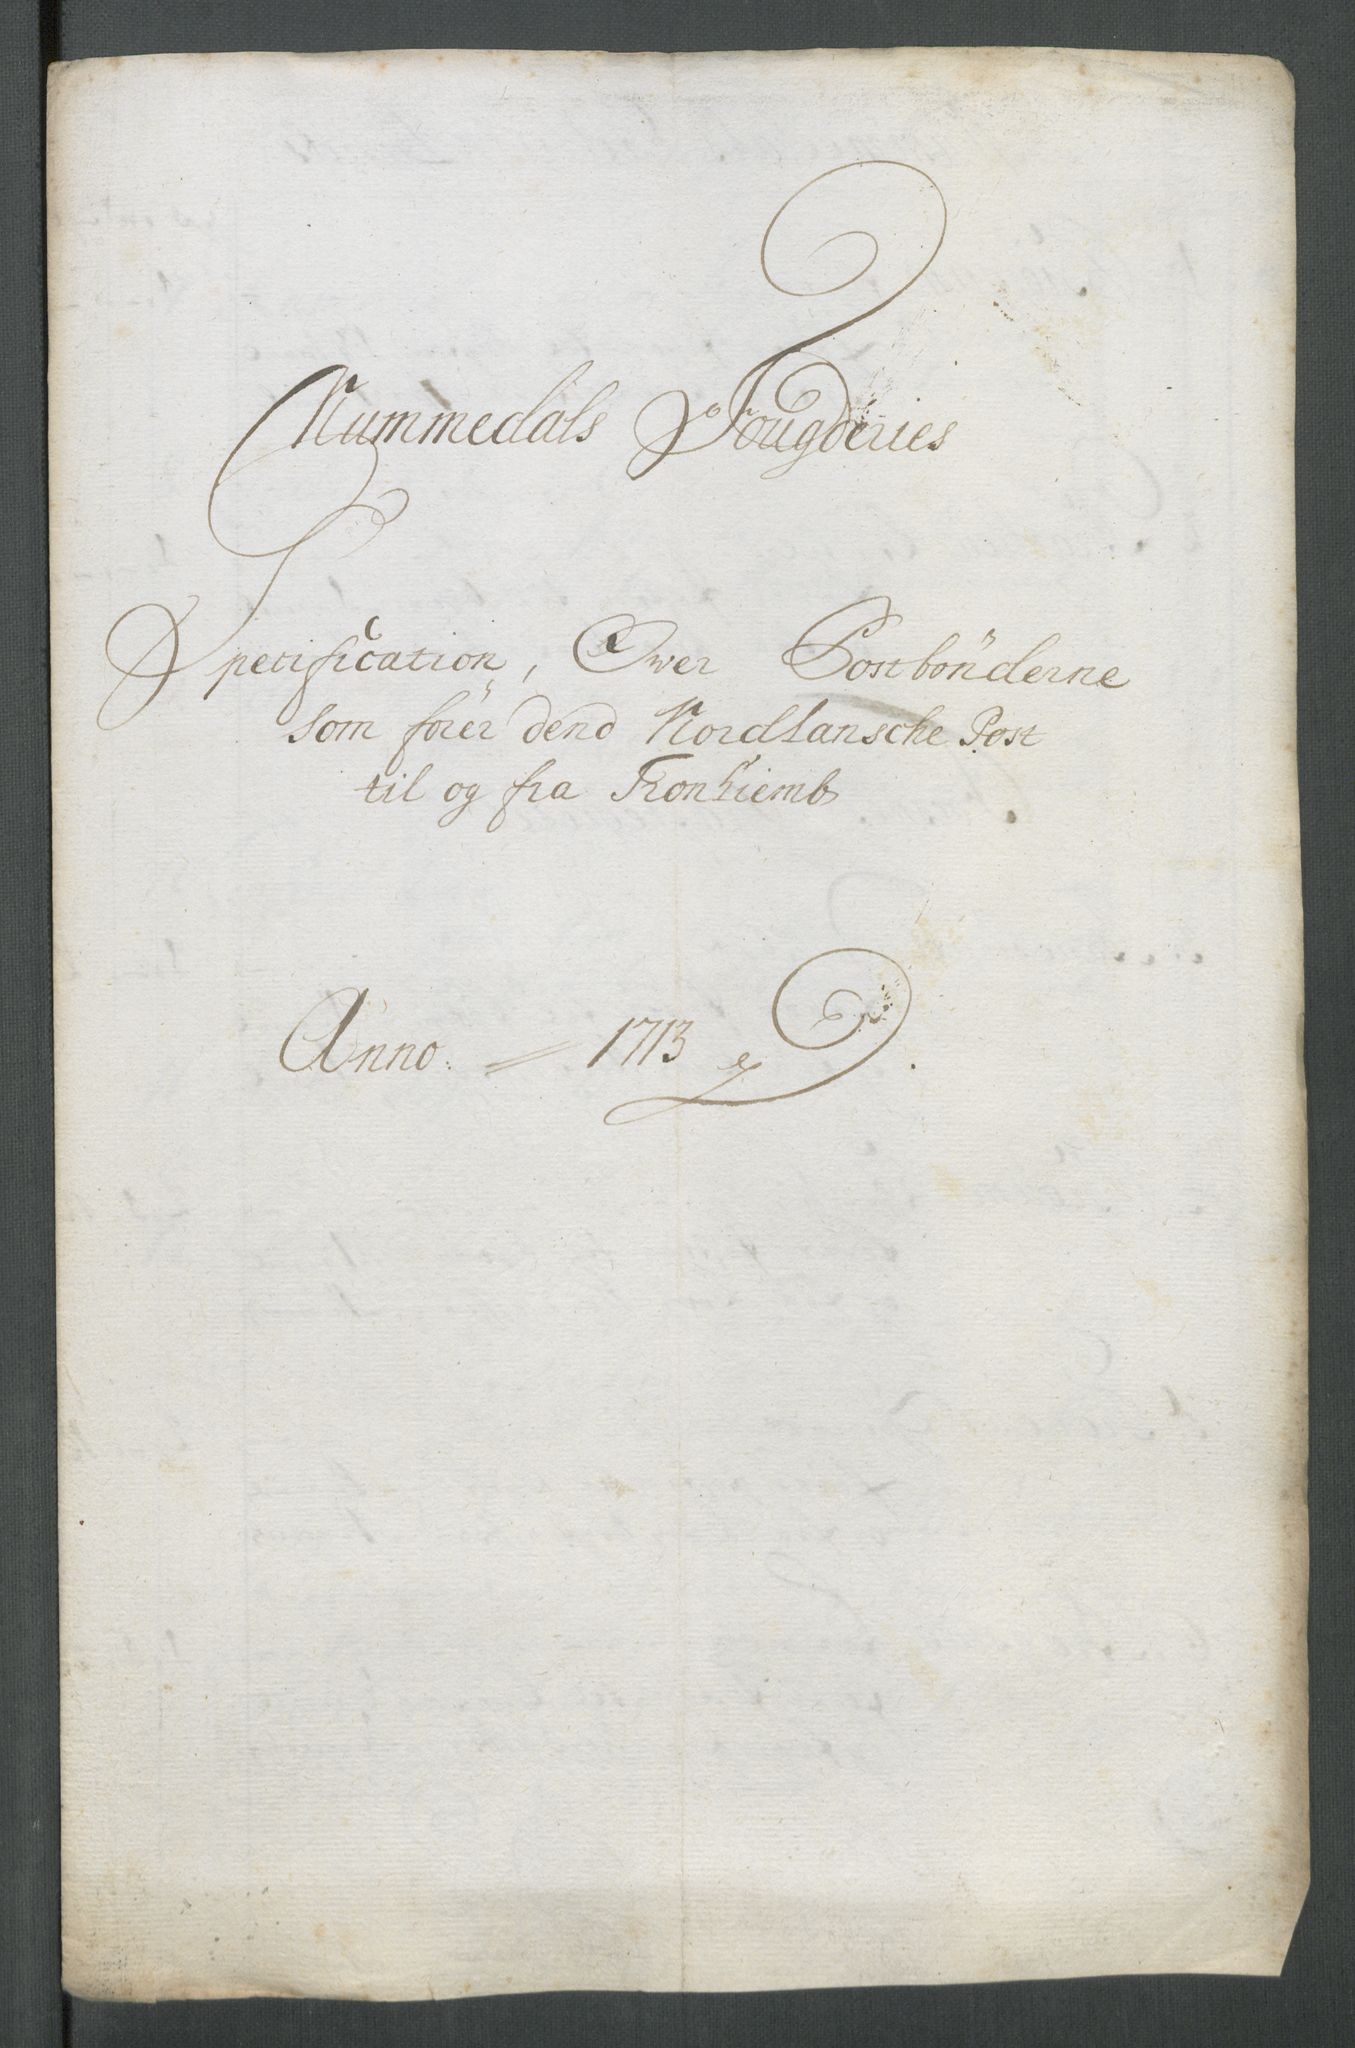 Nummedals Fougderies
Spetification, Over Postbönderne
som förer dend Nordlansche Post
til og fra Tronhiemb
Anno. 1713